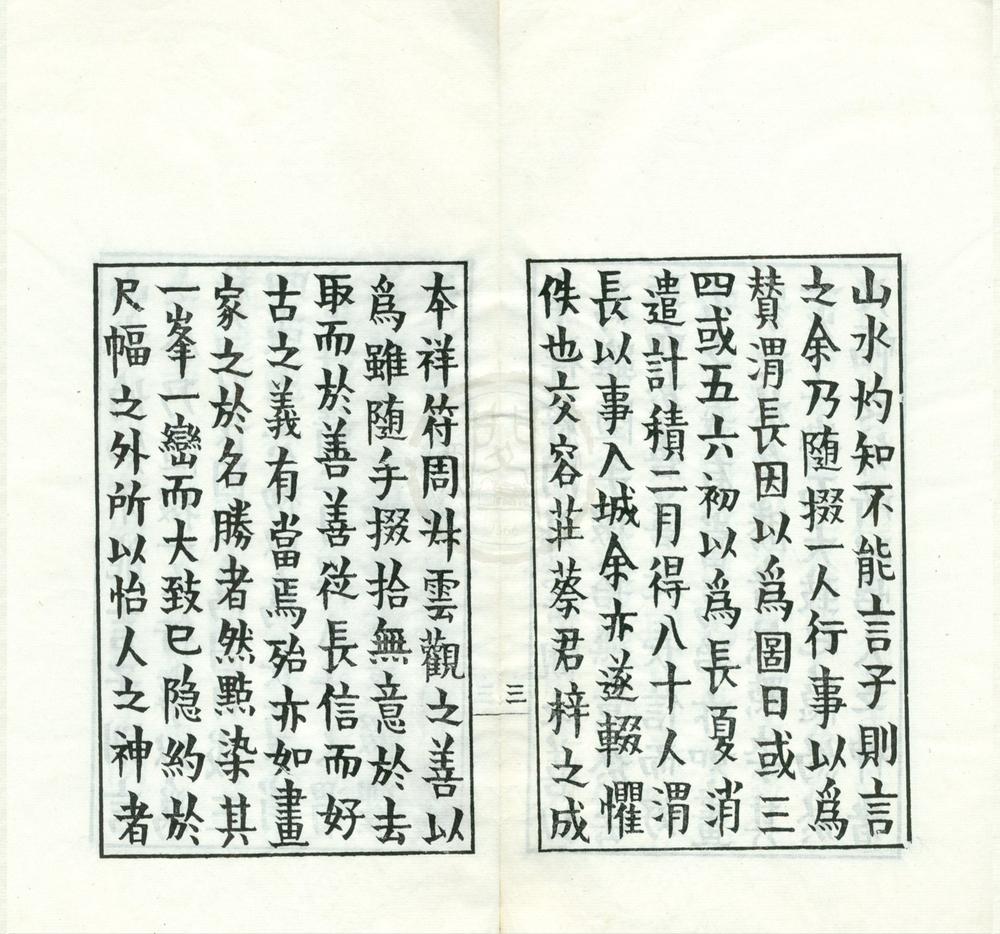 山水灼知不能言子則言
之余乃隨掇一人行事以爲
贊渭長因以爲圖日或三
四或五六初以爲長夏消
遣計積二月得八十人渭
長以事入城余亦遂輟懼
佚也交容莊蔡君梓之成
三
本祥符周叔雲觀之善以
爲雖隨手掇拾無意於去
取而於善善從長信而好
古之義有當焉殆亦如畫
家之於名勝者然點染其
一峯一巒而大致已隱約於
尺幅之外所以怡人之神者